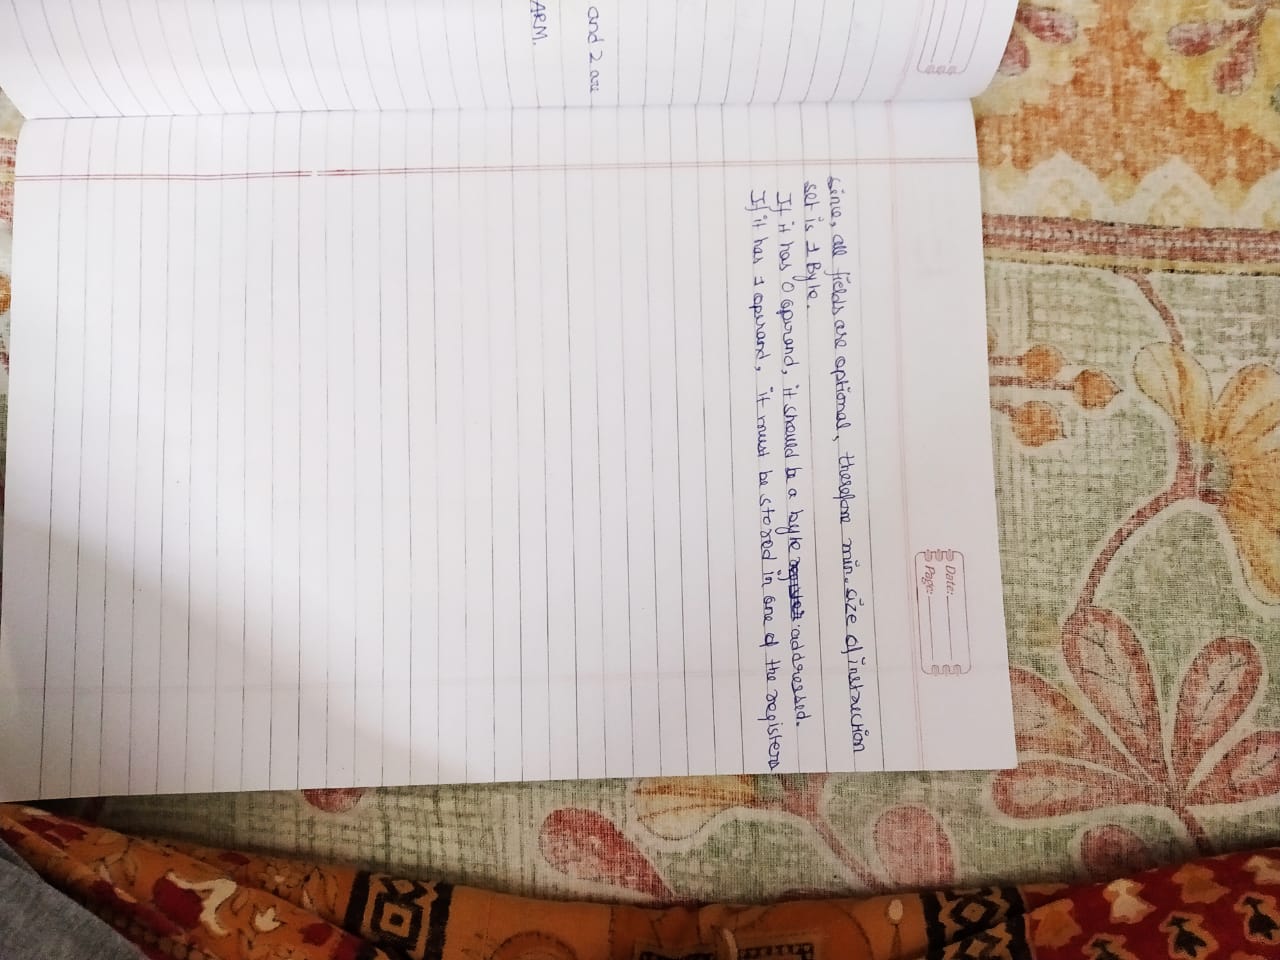 and 2 are
ARM.
Date:
Page:
Since, all fields are optional, therefore min. size of instruction
set is 1 Byte.
If it has 0 operand, it should be a byte addressed.
If it has 1 operand, it must be stored in one of the registers